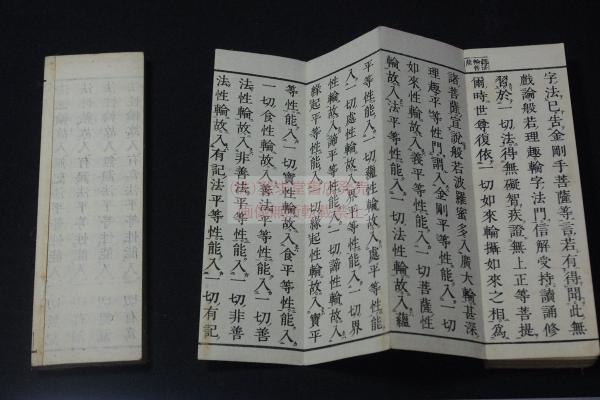 字法已告金剛手菩薩等言若有得聞此無
戲論般若理趣輪字法門信解受持讀誦修
習於一切法得無礙智疾證無上正等菩提
爾時世尊復依一切如來輪攝如來之相爲
諸菩薩宣說般若波羅蜜多入廣大輪甚深
理趣平等性門謂入金剛平等性能入一切
如來性輪故入義平等性能入一切菩薩性
輪故入法平等性能入一切法性輪故入蘊
平等性能入一切蘊性輪故入處平等性能
入一切處性輪故入界平等性能入一切界
性輪故入諦平等性能入一切諦性輪故入
緣起平等性能入一切緣起性輪故入寶平
等性能入一切寶性輪故入食平等性能入
一切食性輪故入善法平等性能入一切善
法性輪故入非善法平等性能入一切非善
法性輪故入有記法平等性能入一切有記